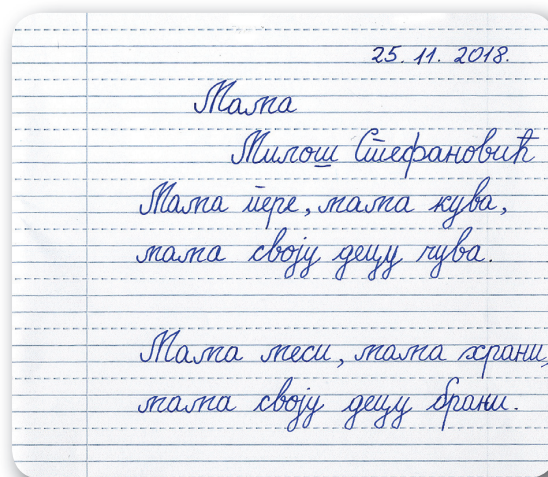 25. 11. 2018.
Мама
Милош Стефановић
Мама пере, мама кува,
мама својy децу чува.
Мама меси, мама храни,
мама своју децу брани.